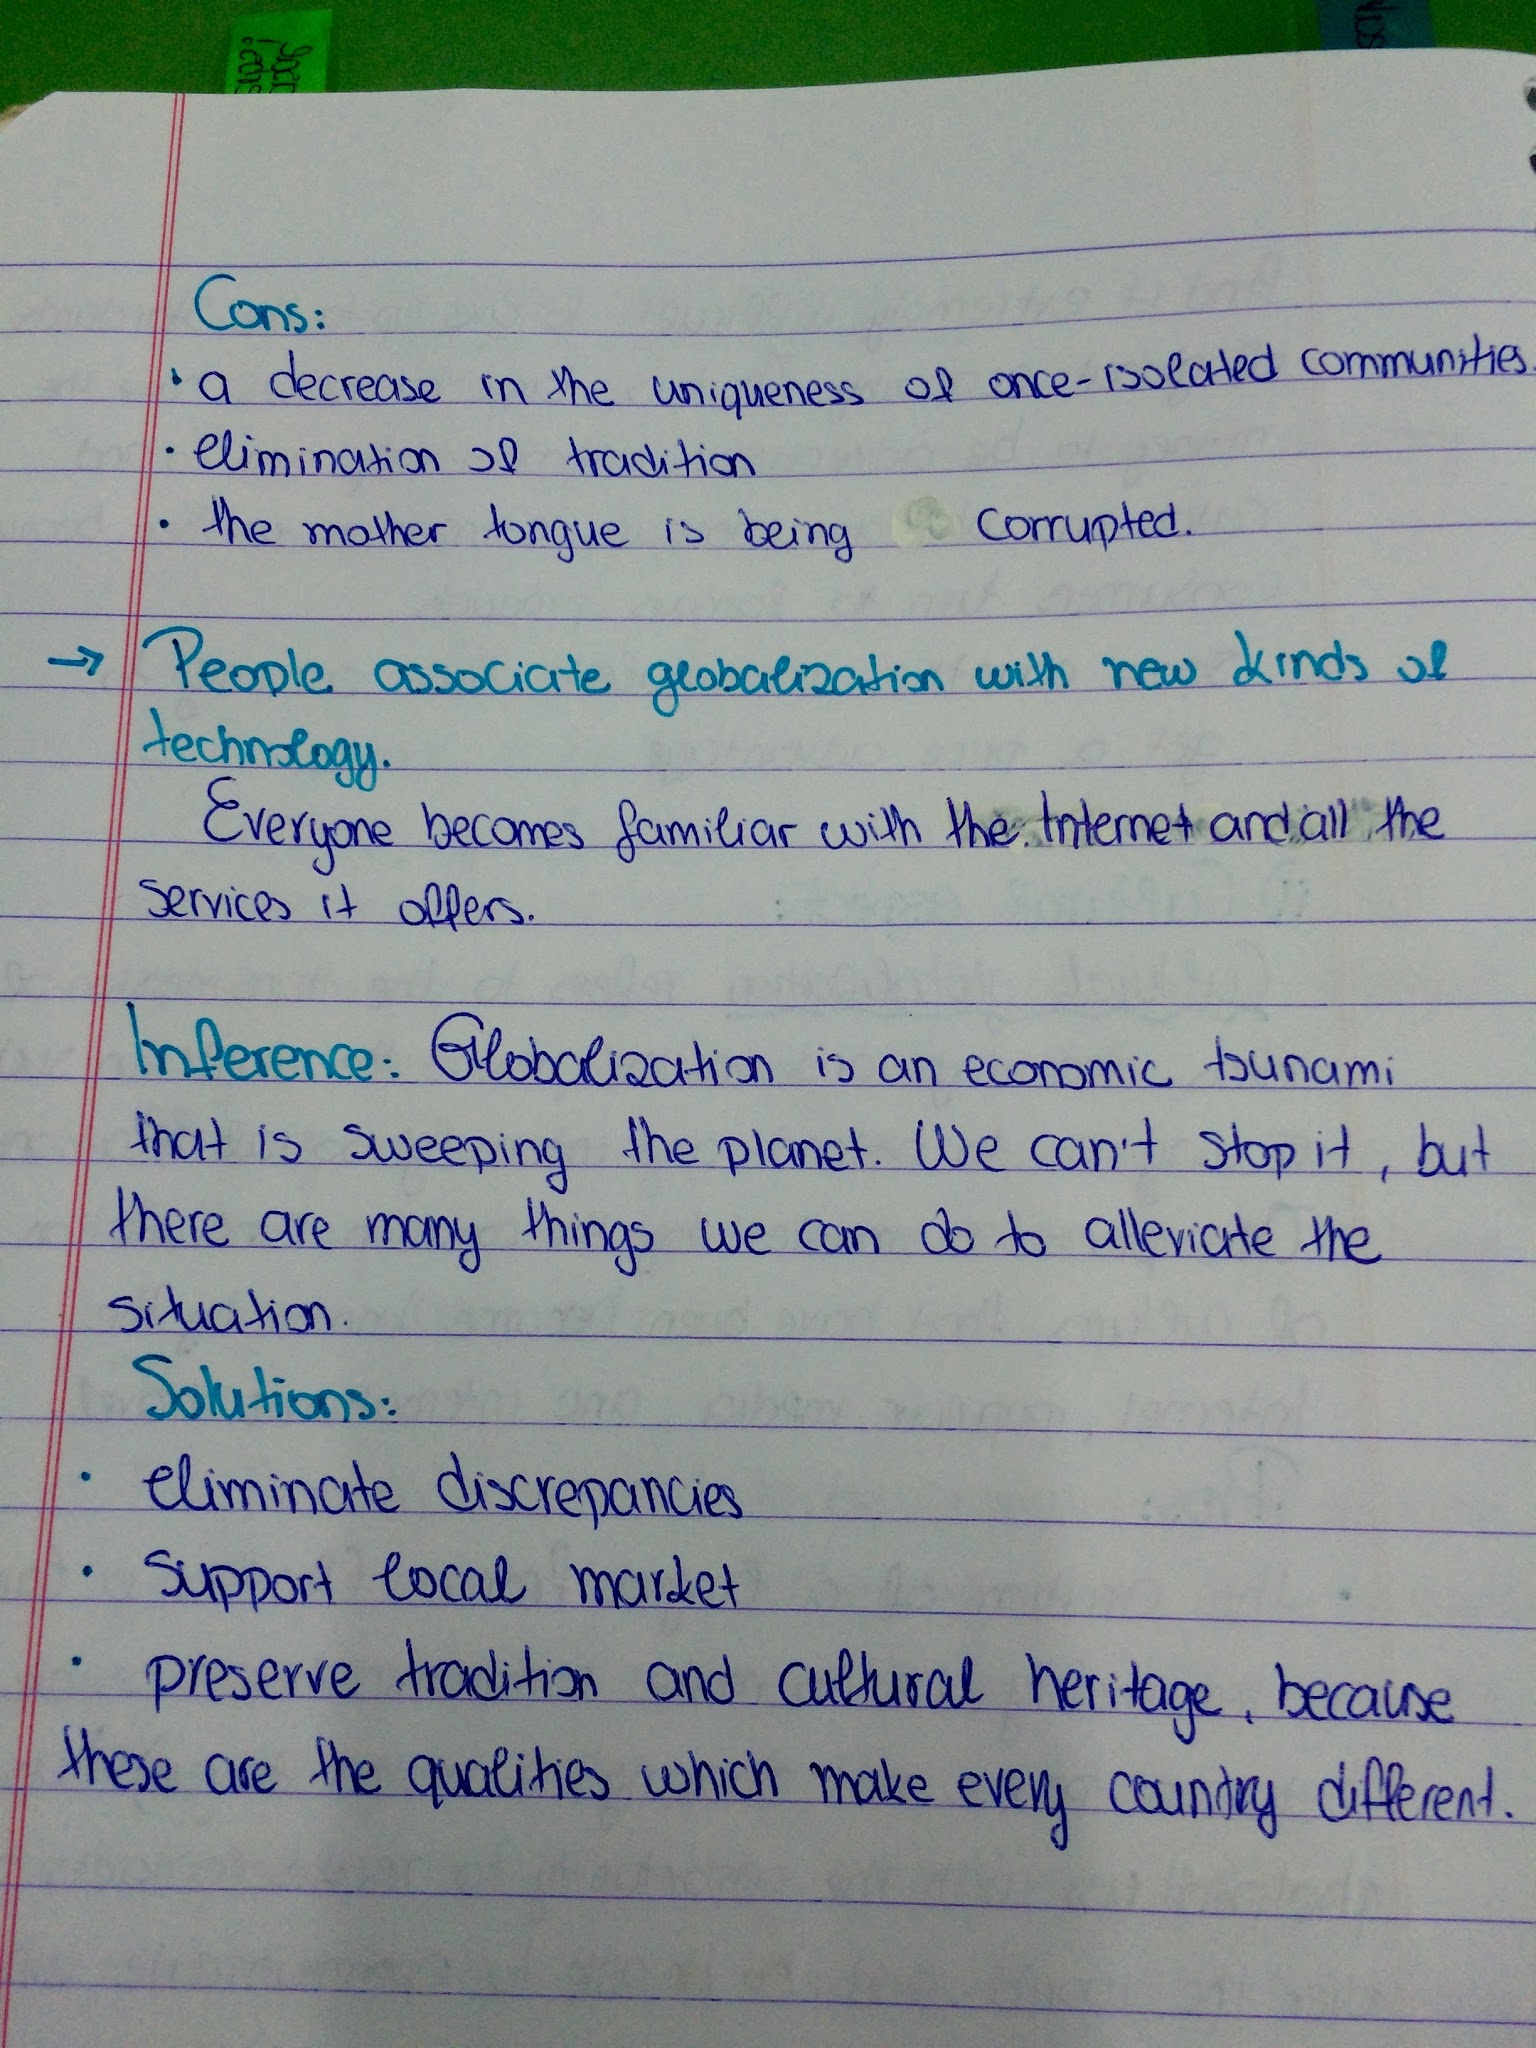 Cons:
• a decrease in the uniqueness of once-isolated communities.
• elimination of tradition
• the mother tongue is being corrupted.
→ People associate globalization with new kinds of
technology.
Everyone becomes familiar with the Internet and all the
services it offers.
Inference: Globalization is an economic tsunami
that is sweeping the planet. We can't stop it, but
there are many things we can do to alleviate the
situation.
Solutions:
• eliminate discrepancies
• support local market
• preserve tradition and cultural heritage, because
these are the qualities which make every country different.